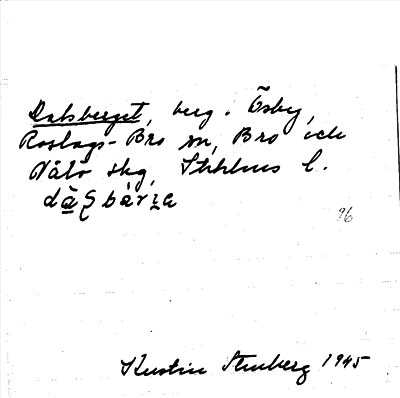 Dalsberget, berg. Ösby,
Roslags-Bro sn, Bro och
Vätö skg, Sthlms l.
96
Kerstin Stenberg 1945